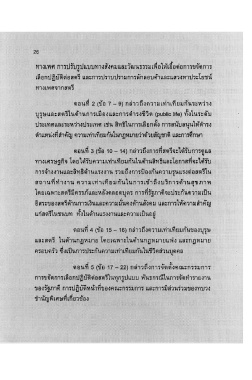 26
ทางเพศ การปรับรูปแบบทางสังคมและวัฒนธรรมเพื่อให้เอื้อต่อการขจัดการ
เลือกปฏิบัติต่อสตรี และการปราบปรามการลักลอบค้าและแสวงหาประโยชน์
ทางเพศจากสตรี
ตอนที่ 2 (ข้อ 7 – 9) กล่าวถึงความเท่าเทียมกันระหว่าง
บุรุษและสตรีในด้านการเมืองและการดำรงชีวิต (public life) ทั้งในระดับ
ประเทศและระหว่างประเทศ เช่น สิทธิในการเลือกตั้ง การสนับสนุนให้ดำรง
ตำแหน่งที่สำคัญ ความเท่าเทียมกันในกฎหมายว่าด้วยสัญชาติ และการศึกษา
ตอนที่ 3 (ข้อ 10 – 14) กล่าวถึงการที่สตรีจะได้รับการดูแล
ทางเศรษฐกิจ โดยได้รับความเท่าเทียมกันในด้านสิทธิและโอกาสที่จะได้รับ
การจ้างงานและสิทธิด้านแรงงาน รวมถึงการป้องกันความรุนแรงต่อสตรีใน
สถานที่ทำงาน ความเท่าเทียมกันในการเข้าถึงบริการด้านสุขภาพ
โดยเฉพาะสตรีมีครรภ์และหลังคลอดบุตร การที่รัฐภาคีจะประกันความเป็น
อิสระของสตรีด้านการเงินและความมั่นคงด้านสังคม และการให้ความสำคัญ
แก่สตรีในชนบท ทั้งในด้านแรงงานและความเป็นอยู่
ตอนที่ 4 (ข้อ 15 – 16) กล่าวถึงความเท่าเทียมกันของบุรุษ
และสตรี ในด้านกฎหมาย โดยเฉพาะในด้านกฎหมายแพ่ง และกฎหมาย
ครอบครัว ซึ่งเป็นการประกันความเท่าเทียมกันในชีวิตส่วนบุคคล
ตอนที่ 5 (ข้อ 17 – 22) กล่าวถึงการจัดตั้งคณะกรรมการ
การขจัดการเลือกปฏิบัติต่อสตรีในทุกรูปแบบ พันธกรณีในการจัดทำรายงาน
ของรัฐภาคี การปฏิบัติหน้าที่ของคณะกรรมการ และการมีส่วนร่วมของทบวง
ชำนัญพิเศษที่เกี่ยวข้อง